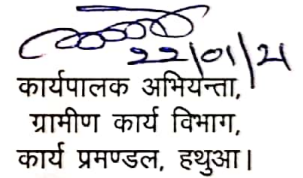 22/01/21
कार्यपालक अभियन्ता,
ग्रामीण कार्य विभाग,
कार्य प्रमण्डल, हथुआ।